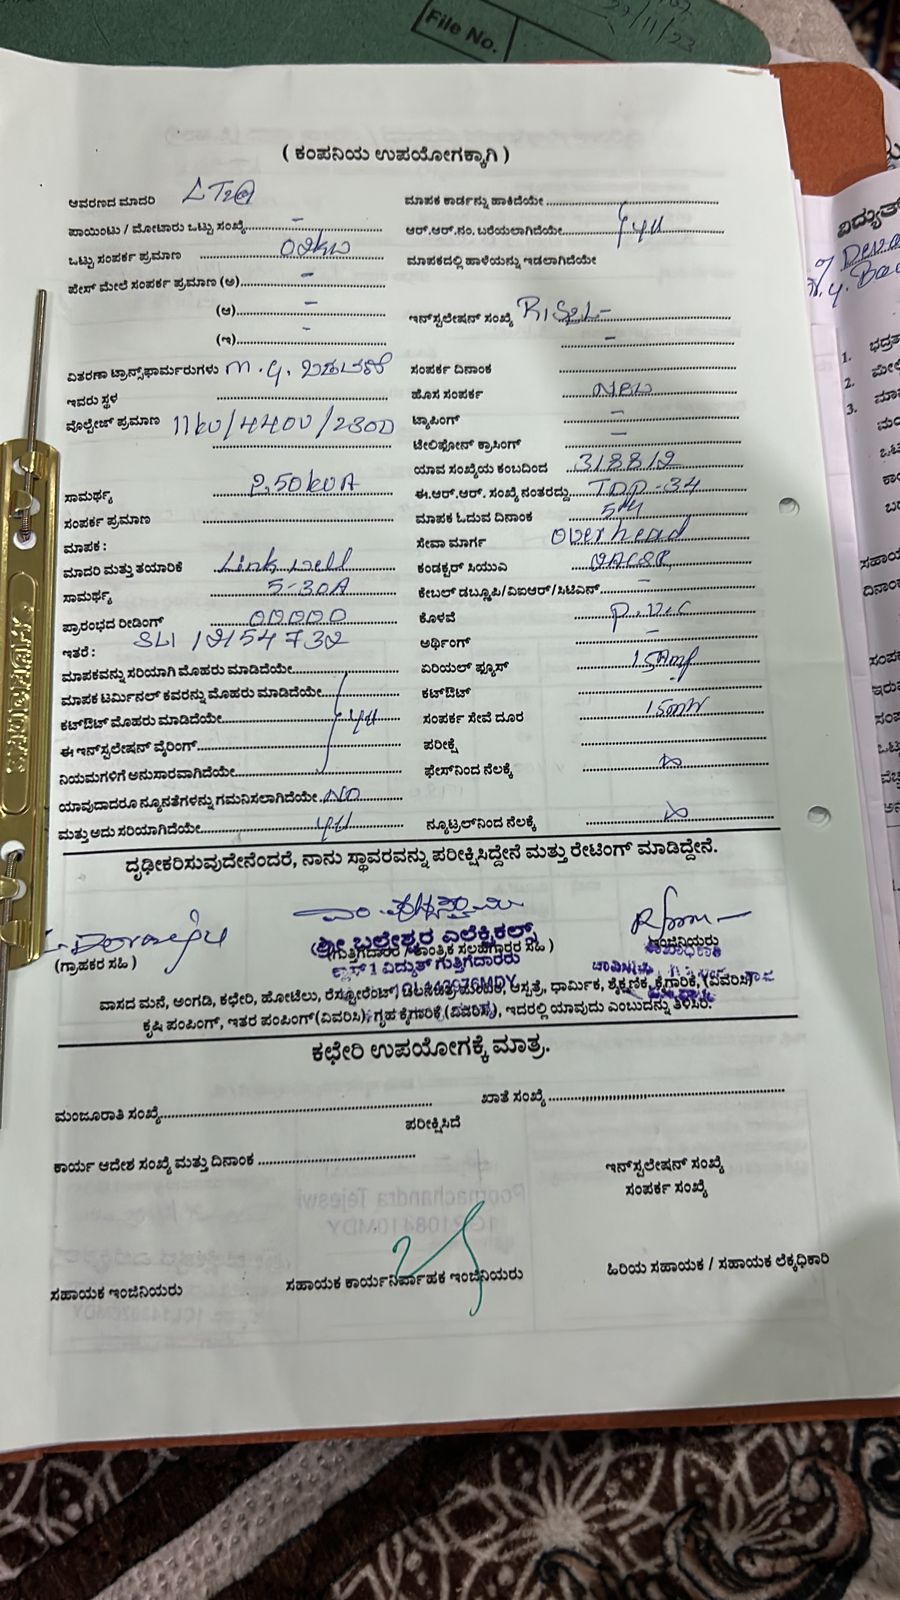 File No.
29/11/23
( ಕಂಪನಿಯ ಉಪಯೋಗಕ್ಕಾಗಿ )
ಆವರಣದ ಮಾದರಿ LT2(a)
ಮಾಪಕ ಕಾರ್ಡನ್ನು ಹಾಕಿದೆಯೇ
ಪಾಯಿಂಟು / ಮೋಟಾರು ಒಟ್ಟು ಸಂಖ್ಯೆ -
ಆರ್.ಆರ್.ನಂ. ಬರೆಯಲಾಗಿದೆಯೇ
ಒಟ್ಟು ಸಂಪರ್ಕ ಪ್ರಮಾಣ 02kw
ಮಾಪಕದಲ್ಲಿ ಹಾಳೆಯನ್ನು ಇಡಲಾಗಿದೆಯೇ
ಫೇಸ್ ಮೇಲೆ ಸಂಪರ್ಕ ಪ್ರಮಾಣ (ಅ) -
(ಆ) -
(ಇ) -
ಇನ್‌ಸ್ಟಲೇಷನ್ ಸಂಖ್ಯೆ
-
ವಿತರಣಾ ಟ್ರಾನ್ಸ್‌ಫಾರ್ಮರುಗಳು
ಸಂಪರ್ಕ ದಿನಾಂಕ
ಇವರು ಸ್ಥಳ
ಹೊಸ ಸಂಪರ್ಕ New
ವೊಲ್ಟೇಜ್ ಪ್ರಮಾಣ 11kv/440v/230v
ಟ್ಯಾಪಿಂಗ್ -
ಟೆಲಿಫೋನ್ ಕ್ರಾಸಿಂಗ್ -
ಯಾವ ಸಂಖ್ಯೆಯ ಕಂಬದಿಂದ 318812
ಸಾಮರ್ಥ್ಯ 250kVA
ಈ.ಆರ್.ಆರ್. ಸಂಖ್ಯೆ ನಂತರದ್ದು TDP-34
ಸಂಪರ್ಕ ಪ್ರಮಾಣ
ಮಾಪಕ ಓದುವ ದಿನಾಂಕ 5th
ಮಾಪಕ :
ಸೇವಾ ಮಾರ್ಗ Overhead
ಮಾದರಿ ಮತ್ತು ತಯಾರಿಕೆ Link well
ಕಂಡಕ್ಟರ್ ಸಿಯುವಿ
ಸಾಮರ್ಥ್ಯ 5-30A
ಕೇಬಲ್ ಡಬ್ಲೂಪಿ/ವಿಐಆರ್/ಸಿಟಿಎಸ್ -
ಪ್ರಾರಂಭದ ರೀಡಿಂಗ್ 00000
ಕೊಳವೆ P.V.C
ಇತರೆ : SLI 12154732
ಅರ್ಥಿಂಗ್ -
ಮಾಪಕವನ್ನು ಸರಿಯಾಗಿ ಮೊಹರು ಮಾಡಿದೆಯೇ
ಏರಿಯಲ್ ಫ್ಯೂಸ್ 15Amp
ಮಾಪಕ ಟರ್ಮಿನಲ್ ಕವರನ್ನು ಮೊಹರು ಮಾಡಿದೆಯೇ
ಕಟ್‌ಔಟ್
ಕಟ್‌ಔಟ್ ಮೊಹರು ಮಾಡಿದೆಯೇ
ಸಂಪರ್ಕ ಸೇವೆ ದೂರ
ಈ ಇನ್‌ಸ್ಟಲೇಷನ್ ವೈರಿಂಗ್
ಪರೀಕ್ಷೆ
ನಿಯಮಗಳಿಗೆ ಅನುಸಾರವಾಗಿದೆಯೇ
ಫೇಸ್‌ನಿಂದ ನೆಲಕ್ಕೆ
ಯಾವುದಾದರೂ ನ್ಯೂನತೆಗಳನ್ನು ಗಮನಿಸಲಾಗಿದೆಯೇ NO
ಮತ್ತು ಅದು ಸರಿಯಾಗಿದೆಯೇ
ನ್ಯೂಟ್ರಲ್‌ನಿಂದ ನೆಲಕ್ಕೆ
ದೃಢೀಕರಿಸುವುದೇನೆಂದರೆ, ನಾನು ಸ್ಥಾವರವನ್ನು ಪರೀಕ್ಷಿಸಿದ್ದೇನೆ ಮತ್ತು ರೇಟಿಂಗ್ ಮಾಡಿದ್ದೇನೆ.
ಶ್ರೀ ಬಲೇಶ್ವರ ಎಲೆಕ್ಟ್ರಿಕಲ್ಸ್
(ಗ್ರಾಹಕರ ಸಹಿ )
(ಗುತ್ತಿಗೆದಾರರ / ತಾಂತ್ರಿಕ ಸಲಹೆಗಾರರ ಸಹಿ )
ಇಂಜಿನಿಯರು
ಕ್ಲಾಸ್ 1 ವಿದ್ಯುತ್ ಗುತ್ತಿಗೆದಾರರು
ವಾಸದ ಮನೆ, ಅಂಗಡಿ, ಕಛೇರಿ, ಹೋಟೆಲು, ರೆಸ್ಟೋರೆಂಟ್, ಆಸ್ಪತ್ರೆ, ಧಾರ್ಮಿಕ, ಶೈಕ್ಷಣಿಕ, ಕೈಗಾರಿಕೆ, (ವಿವರಿಸಿ)
ಕೃಷಿ ಪಂಪಿಂಗ್, ಇತರ ಪಂಪಿಂಗ್ (ವಿವರಿಸಿ), ಗೃಹ ಕೈಗಾರಿಕೆ (ವಿವರಿಸಿ), ಇದರಲ್ಲಿ ಯಾವುದು ಎಂಬುದನ್ನು ತಿಳಿಸಿರಿ.
ಕಛೇರಿ ಉಪಯೋಗಕ್ಕೆ ಮಾತ್ರ.
ಮಂಜೂರಾತಿ ಸಂಖ್ಯೆ
ಖಾತೆ ಸಂಖ್ಯೆ
ಪರೀಕ್ಷಿಸಿದೆ
ಕಾರ್ಯ ಆದೇಶ ಸಂಖ್ಯೆ ಮತ್ತು ದಿನಾಂಕ
ಇನ್‌ಸ್ಟಲೇಷನ್ ಸಂಖ್ಯೆ
ಸಂಪರ್ಕ ಸಂಖ್ಯೆ
ಸಹಾಯಕ ಇಂಜಿನಿಯರು
ಸಹಾಯಕ ಕಾರ್ಯನಿರ್ವಾಹಕ ಇಂಜಿನಿಯರು
ಹಿರಿಯ ಸಹಾಯಕ / ಸಹಾಯಕ ಲೆಕ್ಕಧಿಕಾರಿ